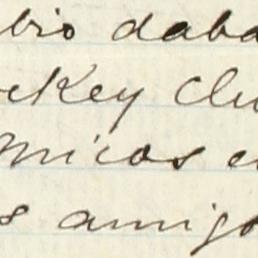 bio daba
ockey Clu
micos e
s amigo